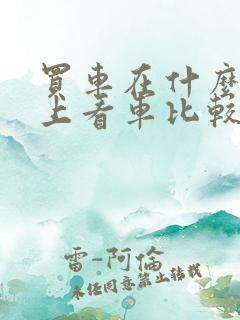 買車在什麼
上看車比較
雷-阿倫
未经同意禁止转载